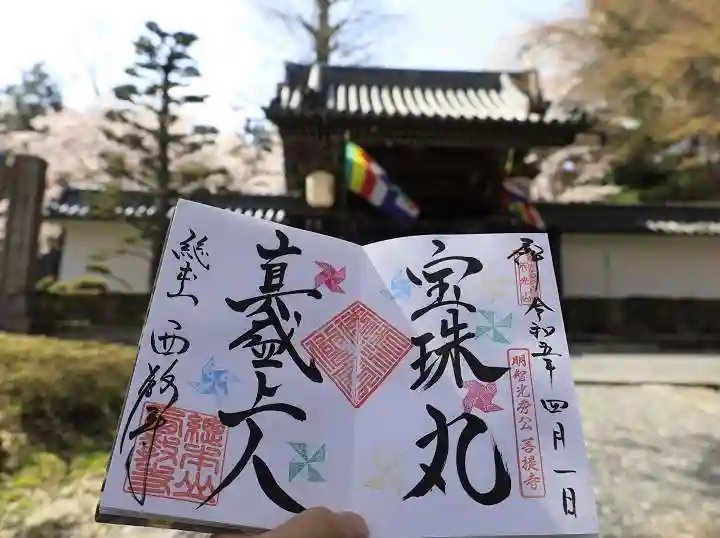 奉拝
令和五年四月一日
明智光秀公菩提寺
宝珠丸
真盛上人
総本山
西教寺